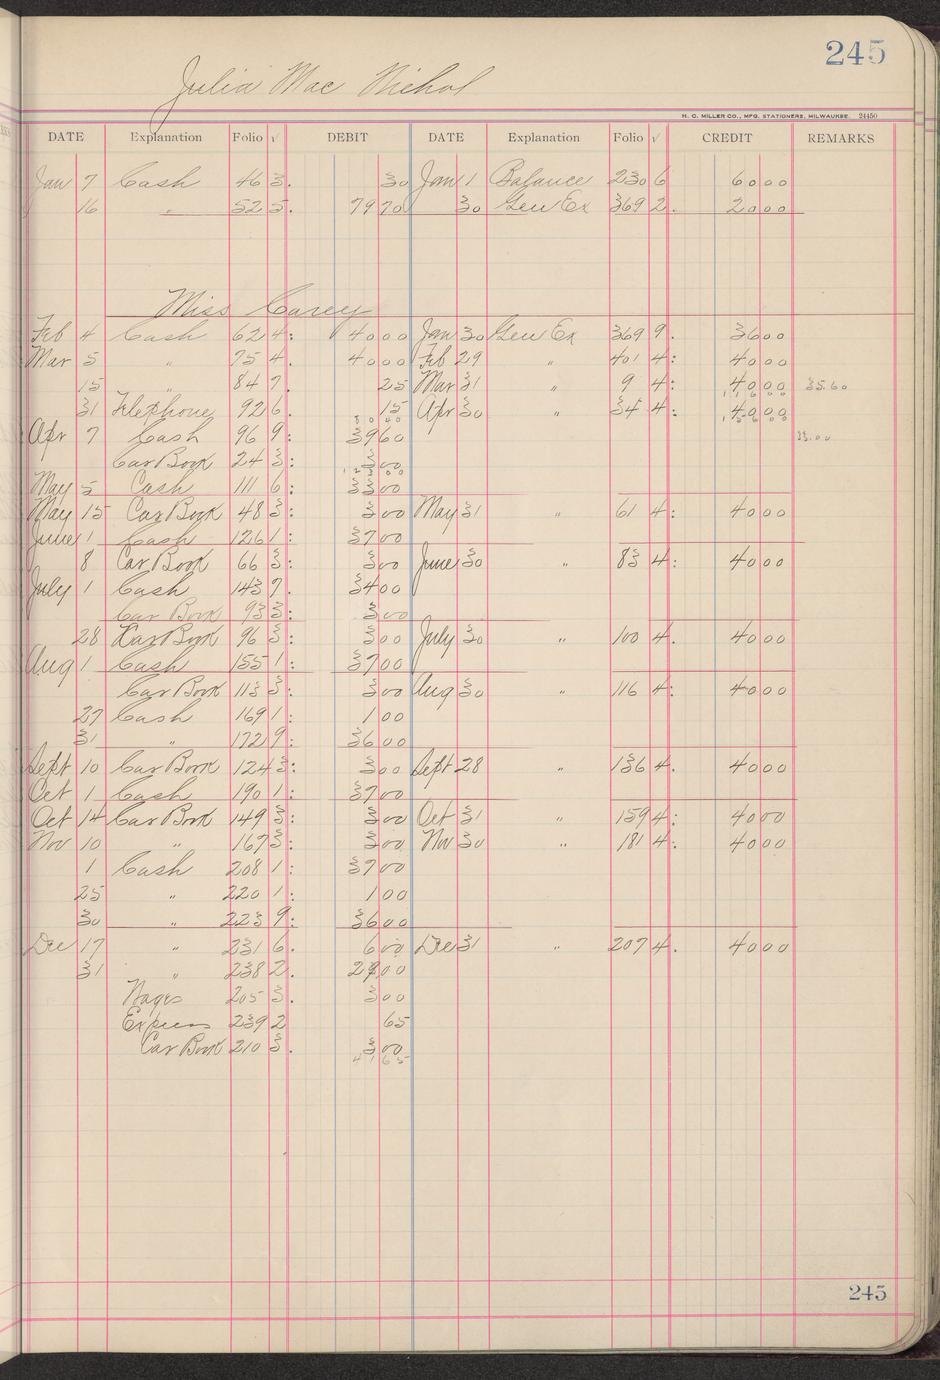 245
Julia Mac Nichol
H. C. MILLER CO., MFG. STATIONERS, MILWAUKEE. 24450
DATE Explanation Folio √ DEBIT DATE Explanation Folio √ CREDIT REMARKS
Jan 7 Cash 46 3. 30 Jan 1 Balance 230 6 60 00
16 " 52 5. 79 70 30 Gen Ex 369 2. 20 00
Miss Carey
Feb 4 Cash 62 4: 40 00 Jan 30 Gen Ex 369 9. 36 00
Mar 5 " 75 4 40 00 Feb 29 " 401 4: 40 00
15 " 84 7. 25 Mar 31 " 9 4: 40 00 35.60
31 Telephone 92 6. 15 Apr 30 " 34 4: 40 00
Apr 7 Cash 96 9: 39 60 33.00
Car Book 24 3: 3 00
May 5 Cash 111 6: 33 00
May 15 Car Book 48 3: 3 00 May 31 " 61 4: 40 00
June 1 Cash 126 1: 37 00
8 Car Book 66 3: 3 00 June 30 " 83 4: 40 00
July 1 Cash 143 7. 34 00
Car Book 93 3: 3 00
28 Car Book 96 3: 3 00 July 30 " 100 4. 40 00
Aug 1 Cash 155 1: 37 00
Car Book 113 3: 3 00 Aug 30 " 116 4: 40 00
27 Cash 169 1: 1 00
31 " 172 9: 36 00
Sept 10 Car Book 124 3: 3 00 Sept 28 " 136 4. 40 00
Oct 1 Cash 190 1: 37 00
Oct 14 Car Book 149 3: 3 00 Oct 31 " 159 4: 40 00
Nov 10 " 167 3: 3 00 Nov 30 " 181 4: 40 00
1 Cash 208 1: 37 00
25 " 220 1: 1 00
30 " 223 9: 36 00
Dec 17 " 231 6. 6 00 Dec 31 " 207 4. 40 00
31 " 238 2. 29 00
Wages 205 3. 3 00
Express 239 2 65
Car Book 210 3. 3 00
41 65
245